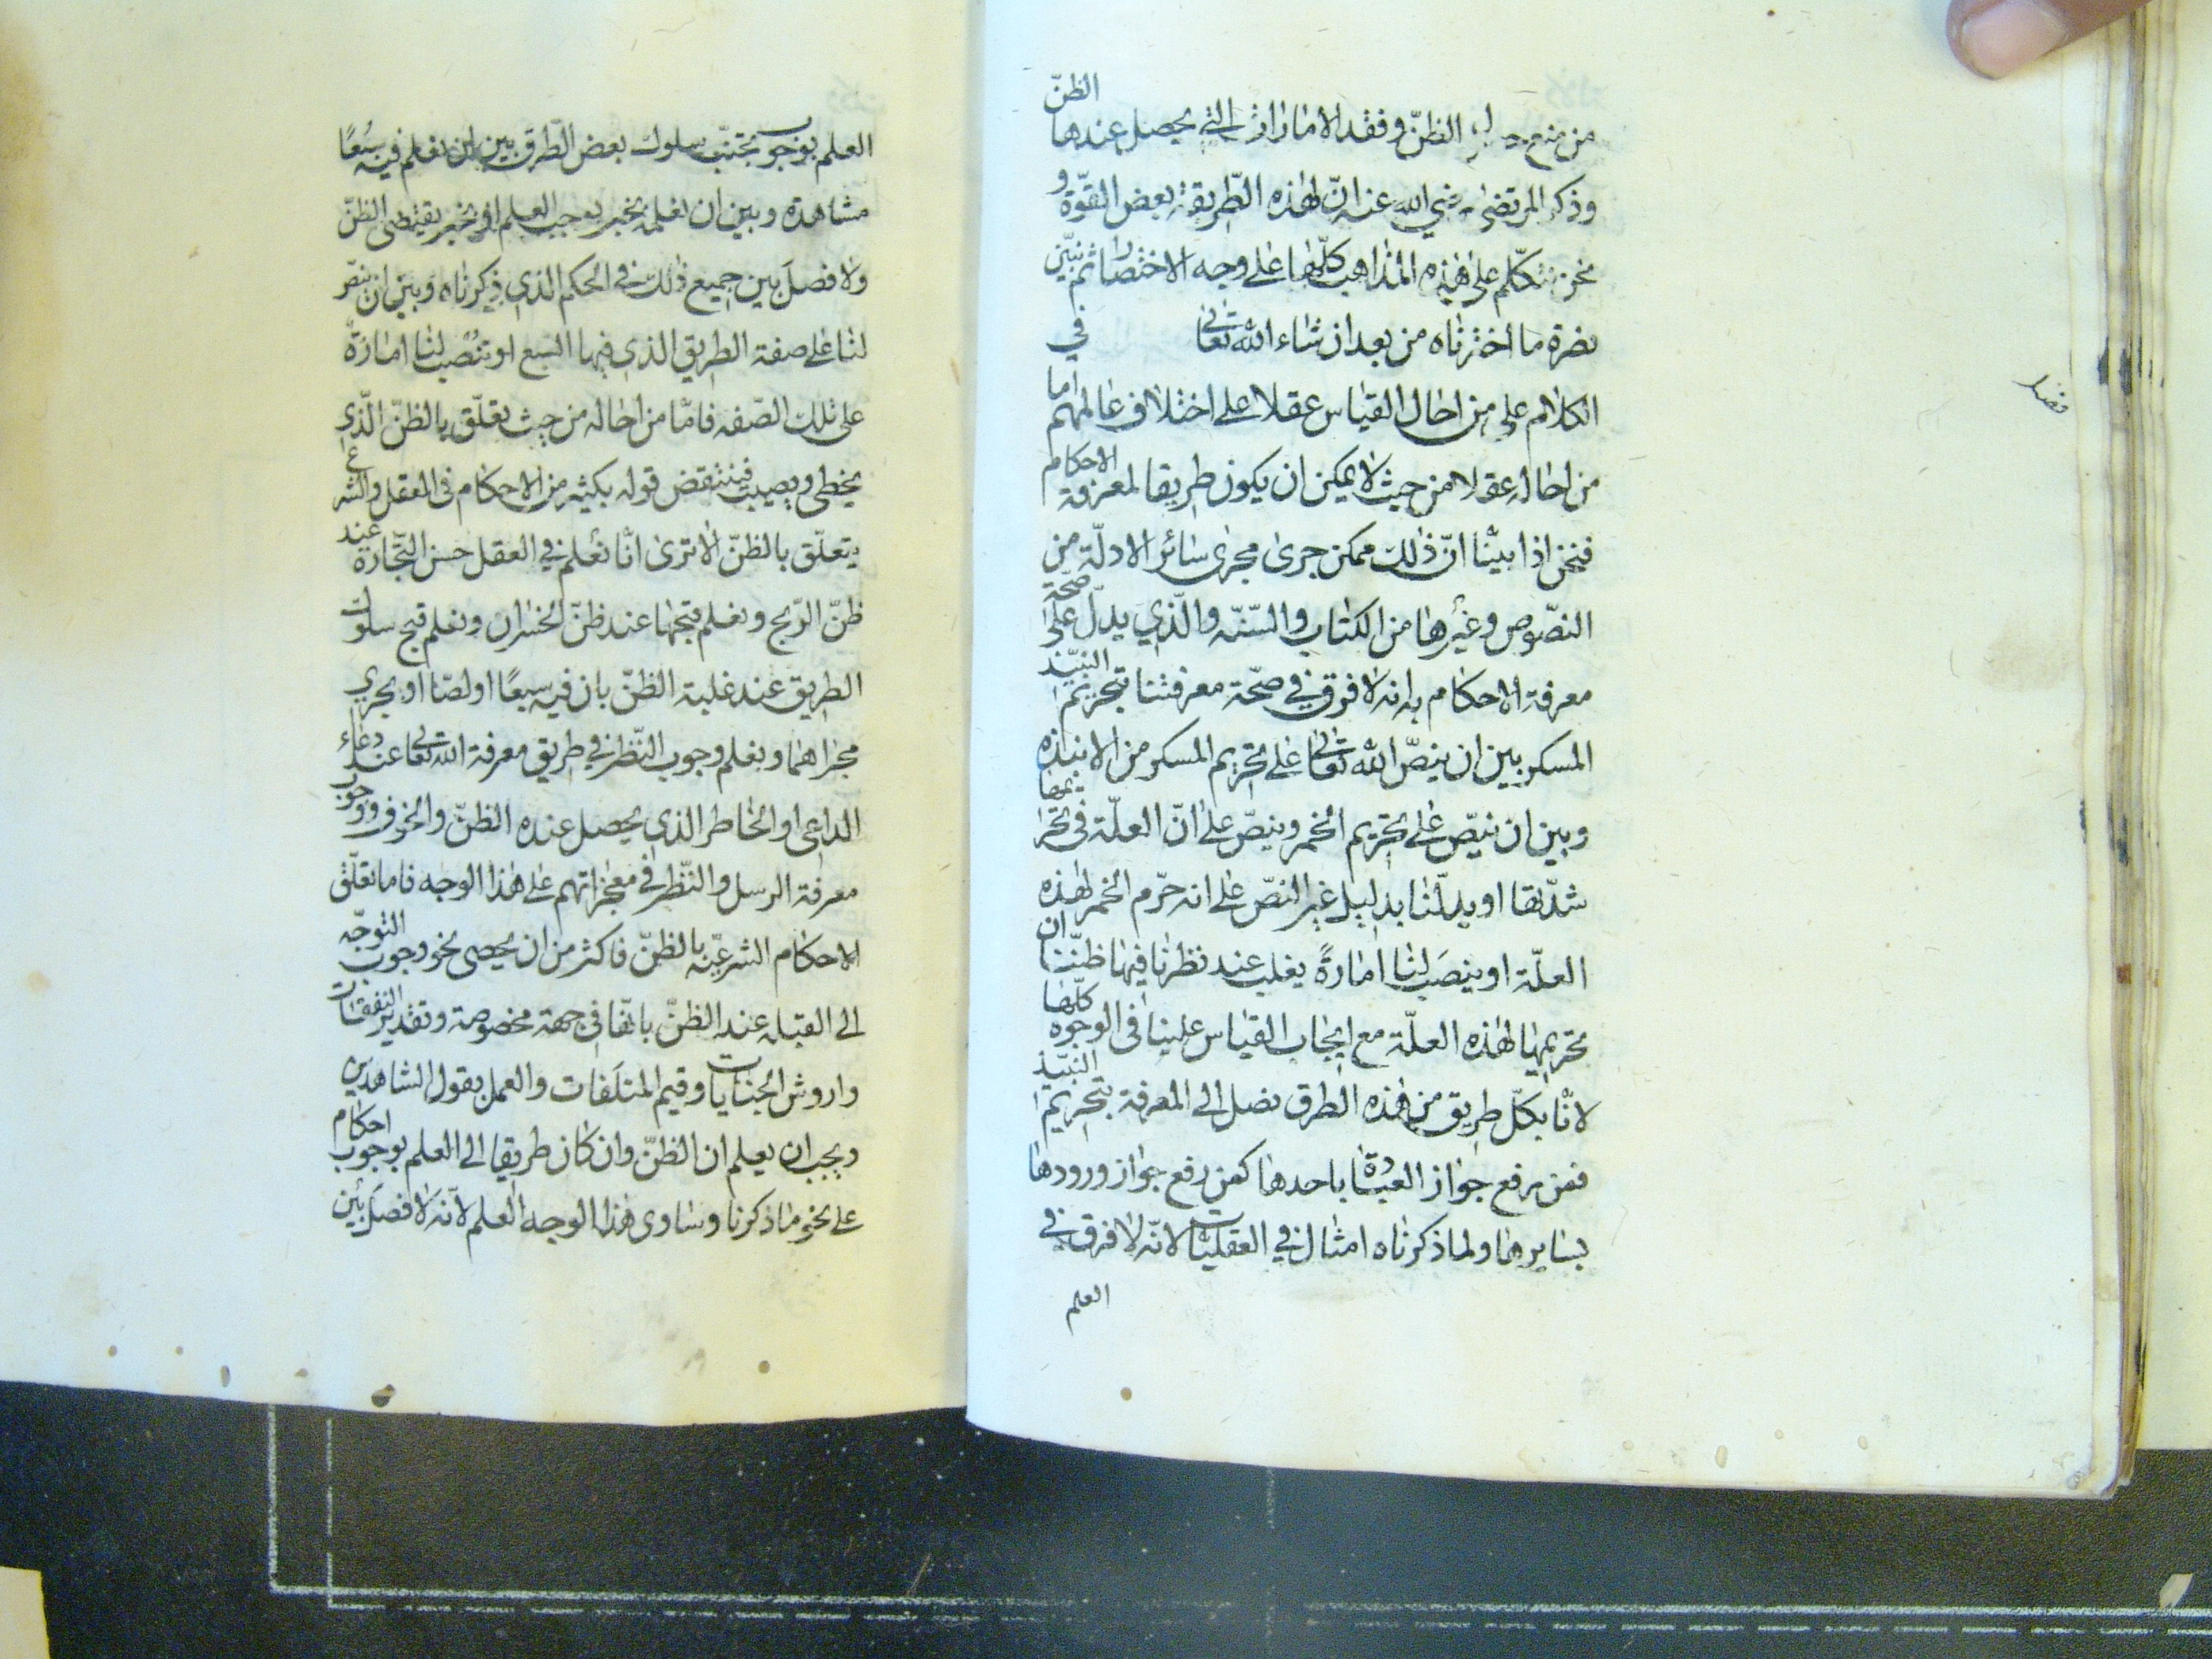 من منع حصول الظنّ وفقد الامارات التي يحصل عندها الظنّ
وذكر المرتضى رضي الله عنه انّ لهذه الطّريقة بعض القوّة و
نحن نتكلّم على هذه المذاهب كلّها على وجه الاختصار ثم نبيّن
نصرة ما اخترناه من بعد ان شاء الله تعالى في
فصل
الكلام على من احال القياس عقلا على اختلاف عللهم اما
من احاله عقلا من حيث لا يمكن ان يكون طريقا لمعرفة الاحكام
فنحن اذا بيّنا انّ ذلك ممكن جرى مجرى سائر الادلّة من
النصّوص وغيرها من الكتاب والسّنّه والّذي يدلّ على صحّة
معرفة الاحكام به انه لا فرق في صحّة معرفتنا بتحريم النبيّذ
المسكر بين ان ينصّ الله تعالى على تحريم المسكر من الانبذه
وبين ان ينصّ على تحريم الخمر وينصّ على انّ العلّة في تحريمها
شدّتها او يدلّنا بدليل غير النصّ على انه حرّم الخمر لهذه
العلّة او ينصب لنا امارةً يغلب عند نظرنا فيها ظنّنا ان
تحريمها لهذه العلّة مع ايجاب القياس علينا في الوجوه كلّها
لانّا بكلّ طريق من هذه الطرق نصل الى المعرفة بتحريم النبيّذ
فمن رفع جواز العبادة باحدها كمن رفع جواز ورودها
بسايرها ولما ذكرناه امثال في العقليّات لانّه لا فرق في
العلم
العلم بوجوب تجنّب سلوك بعض الطّرق بين ان نعلم فيه سبعًا
مشاهدة وبين ان نعلمه بخبر يوجب العلم او بخبر يقتضى الظنّ
ولا فصل بين جميع ذلك في الحكم الذي ذكرناه وبين ان ينصّ
لنا على صفة الطريق الذي فيها السبع او تنصب لنا امارة
على تلك الصّفه فامّا من احاله من حيث تعلّق بالظنّ الّذي
يخطى ويصيب فينتقض قوله بكثير من الاحكام فى العقل والشرع
يتعلّق بالظنّ الا ترى انّا نعلم في العقل حسن التّجارة عند
ظنّ الرّبح ونعلم قبحها عند ظنّ الخسران ونعلم قبح سلوك
الطريق عند غلبة الظنّ بان فيه سبعًا او لصّا او يجري
مجراهما ونعلم وجوب النّظر في طريق معرفة الله تعالى عند دعاء
الداعى او الخاطر الذي يحصل عنده الظنّ والخوف ووجوب
معرفة الرسل والنّظر في معجزاتهم على هذا الوجه فاما تعلّق
الاحكام الشرعيّه بالظنّ فاكثر من ان يحصى نحو وجوب التوجّه
الى القبله عند الظنّ بانّها في جهة مخصوصة وتقدير النفقات
واروش الجنايات وقيم المتلفات والعمل بقول الشاهدين
ويجب ان يعلم ان الظنّ وان كان طريقا الى العلم بوجوب احكام
على نحو ما ذكرنا وساوى هذا الوجه العلم لانّه لا فصل بين